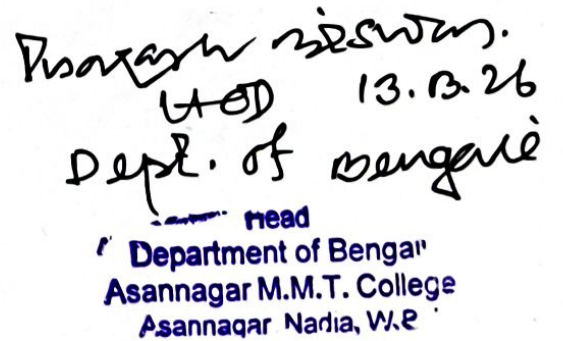 Prakash Biswas.
HOD 13.03.26
Dept. of Bengali
Head
Department of Bengal
Asannagar M.M.T. College
Asannagar Nadia, W.B